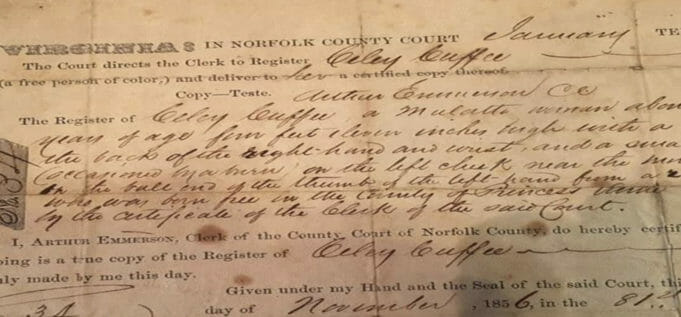 VIRGINIA: IN NORFOLK COUNTY COURT January TE
The Court directs the Clerk to Register Celey Cuffee
(a free person of color,) and deliver to her a certified copy thereof.
Copy—Teste. Arthur Emmerson CC
The Register of Celey Cuffee a Mulatto woman abou
years of age four feet eleven inches high with a
the back of the right hand and wrist, and a sma
occasioned by a burn, on the left cheek near the
in the ball end of the thumb of the left hand from a
who was born free in the County of Princess Anne
by the certificate of the Clerk of the said Court.
I, ARTHUR EMMERSON, Clerk of the County Court of Norfolk County, do hereby certif
oing is a true copy of the Register of Celey Cuffee
nly made by me this day.
Given under my Hand and the Seal of the said Court, thi
34 day of November, 1856, in the 81st